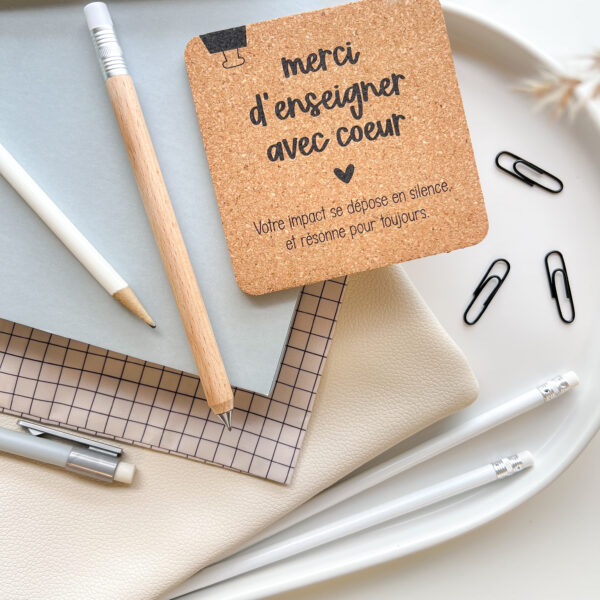 merci
d'enseigner
avec coeur
Votre impact se dépose en silence,
et résonne pour toujours.